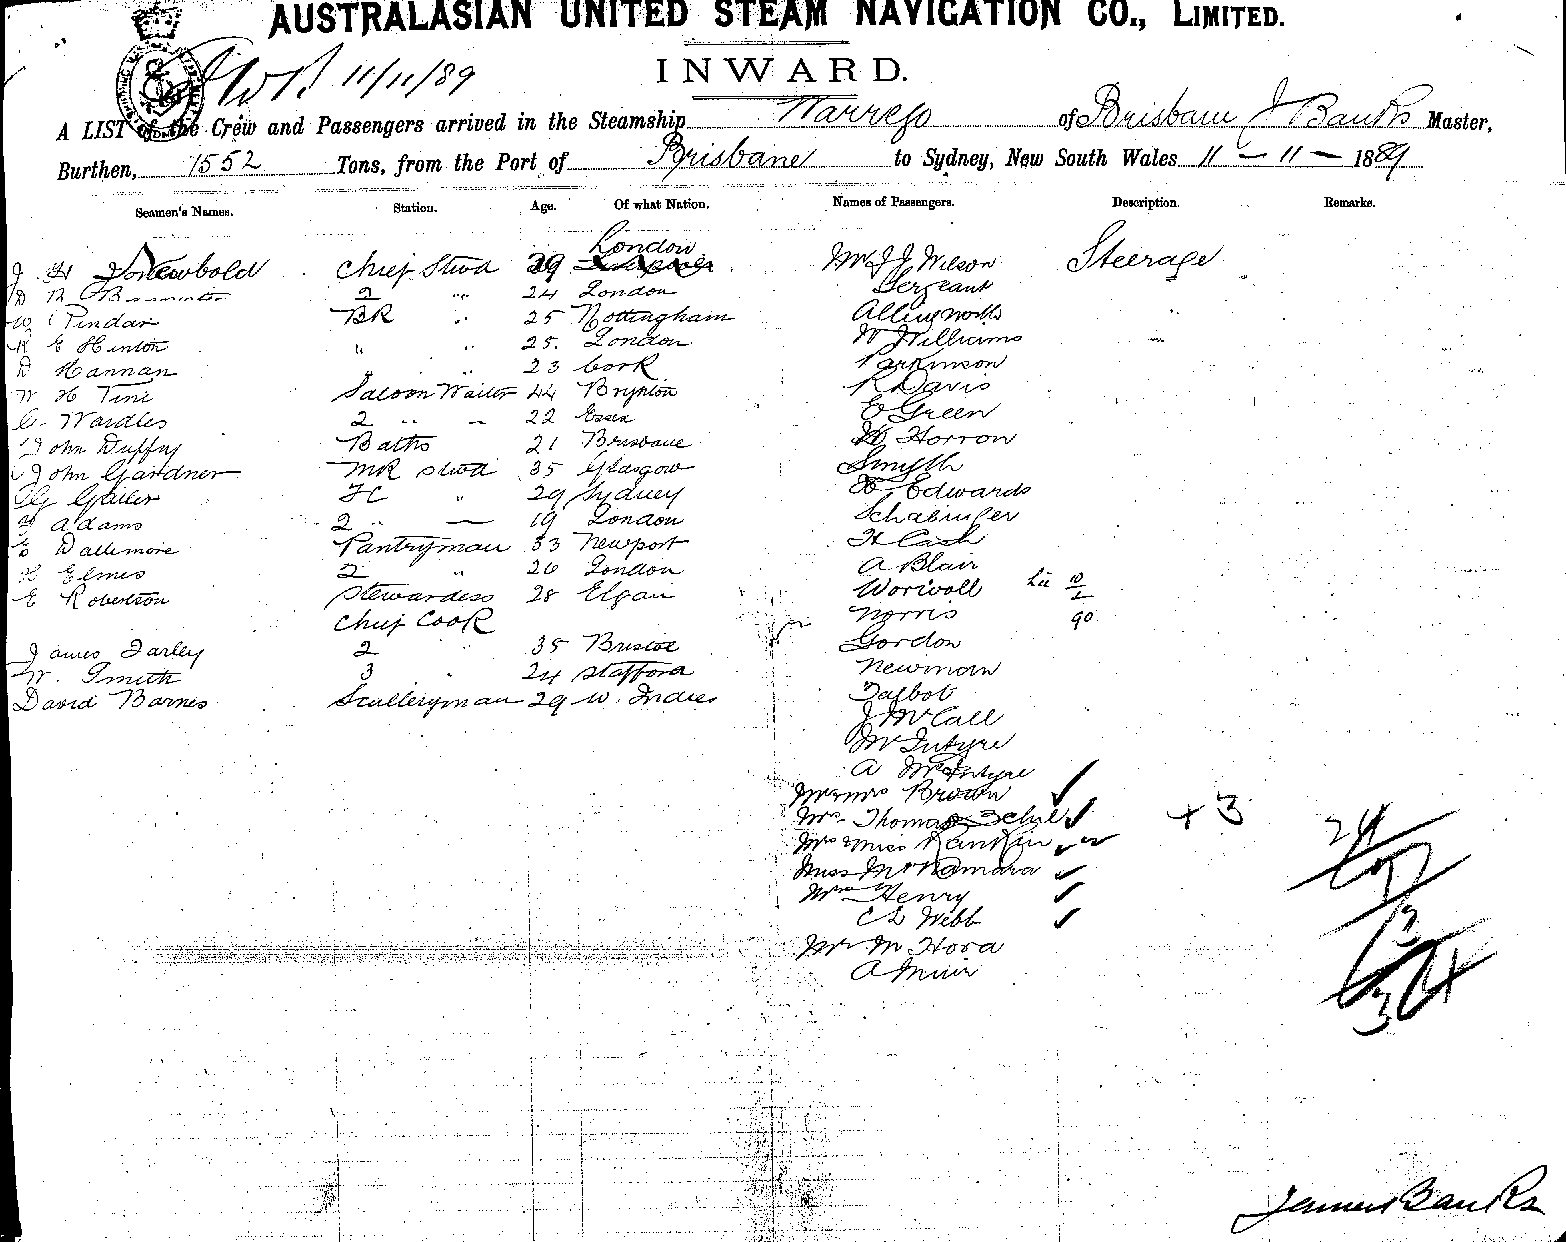 AUSTRALASIAN UNITED STEAM NAVIGATION CO., LIMITED.
11/11/89
INWARD.
A LIST of the Crew and Passengers arrived in the Steamship Warrego of Brisbane J Banks Master,
Burthen, 1552 Tons, from the Port of Brisbane to Sydney, New South Wales 11 - 11 - 1889
Seamen's Names. Station. Age. Of what Nation. Names of Passengers. Description. Remarks.
London
J H Newbold Chief Stwd 29 Mr J J Wilson Steerage
2 " 24 London Sergeant
Pindar BR " 25 Nottingham Allingworth
R E Hinton " " 25. London W Williams
D Hannan " " 23 Cork Parkinson
W H Tine Saloon Waiter 44 Brighton R Davis
C. Wardles 2 " " 22 Essex E Green
John Duffy Baths 21 Brisbane W Horron
John Gardner MR Stwd 35 Glasgow Smyth
G Gailer FC " 29 Sydney Edwards
Adams 2 " — 19 London Schabinger
E Dallimore Pantryman 33 Newport H Cash
H Elmes 2 " 26 London A Blair
E Robertson Stewardess 28 Elgin Worivoll
Chief Cook Norris 90
James Farley 2 35 Briscoe Gordon
W. Smith 3 24 Stafford Newman
David Barnes Sculleryman 29 W. Indies Talbot
J McCall
McIntyre
A McIntyre
Mr & Mrs Brown
Mrs Thomas +3
Mrs & Miss Rankin 24
Miss McNamara
Mrs Henry
C L Webb
Mr M Hora
A Muir
34
James Banks